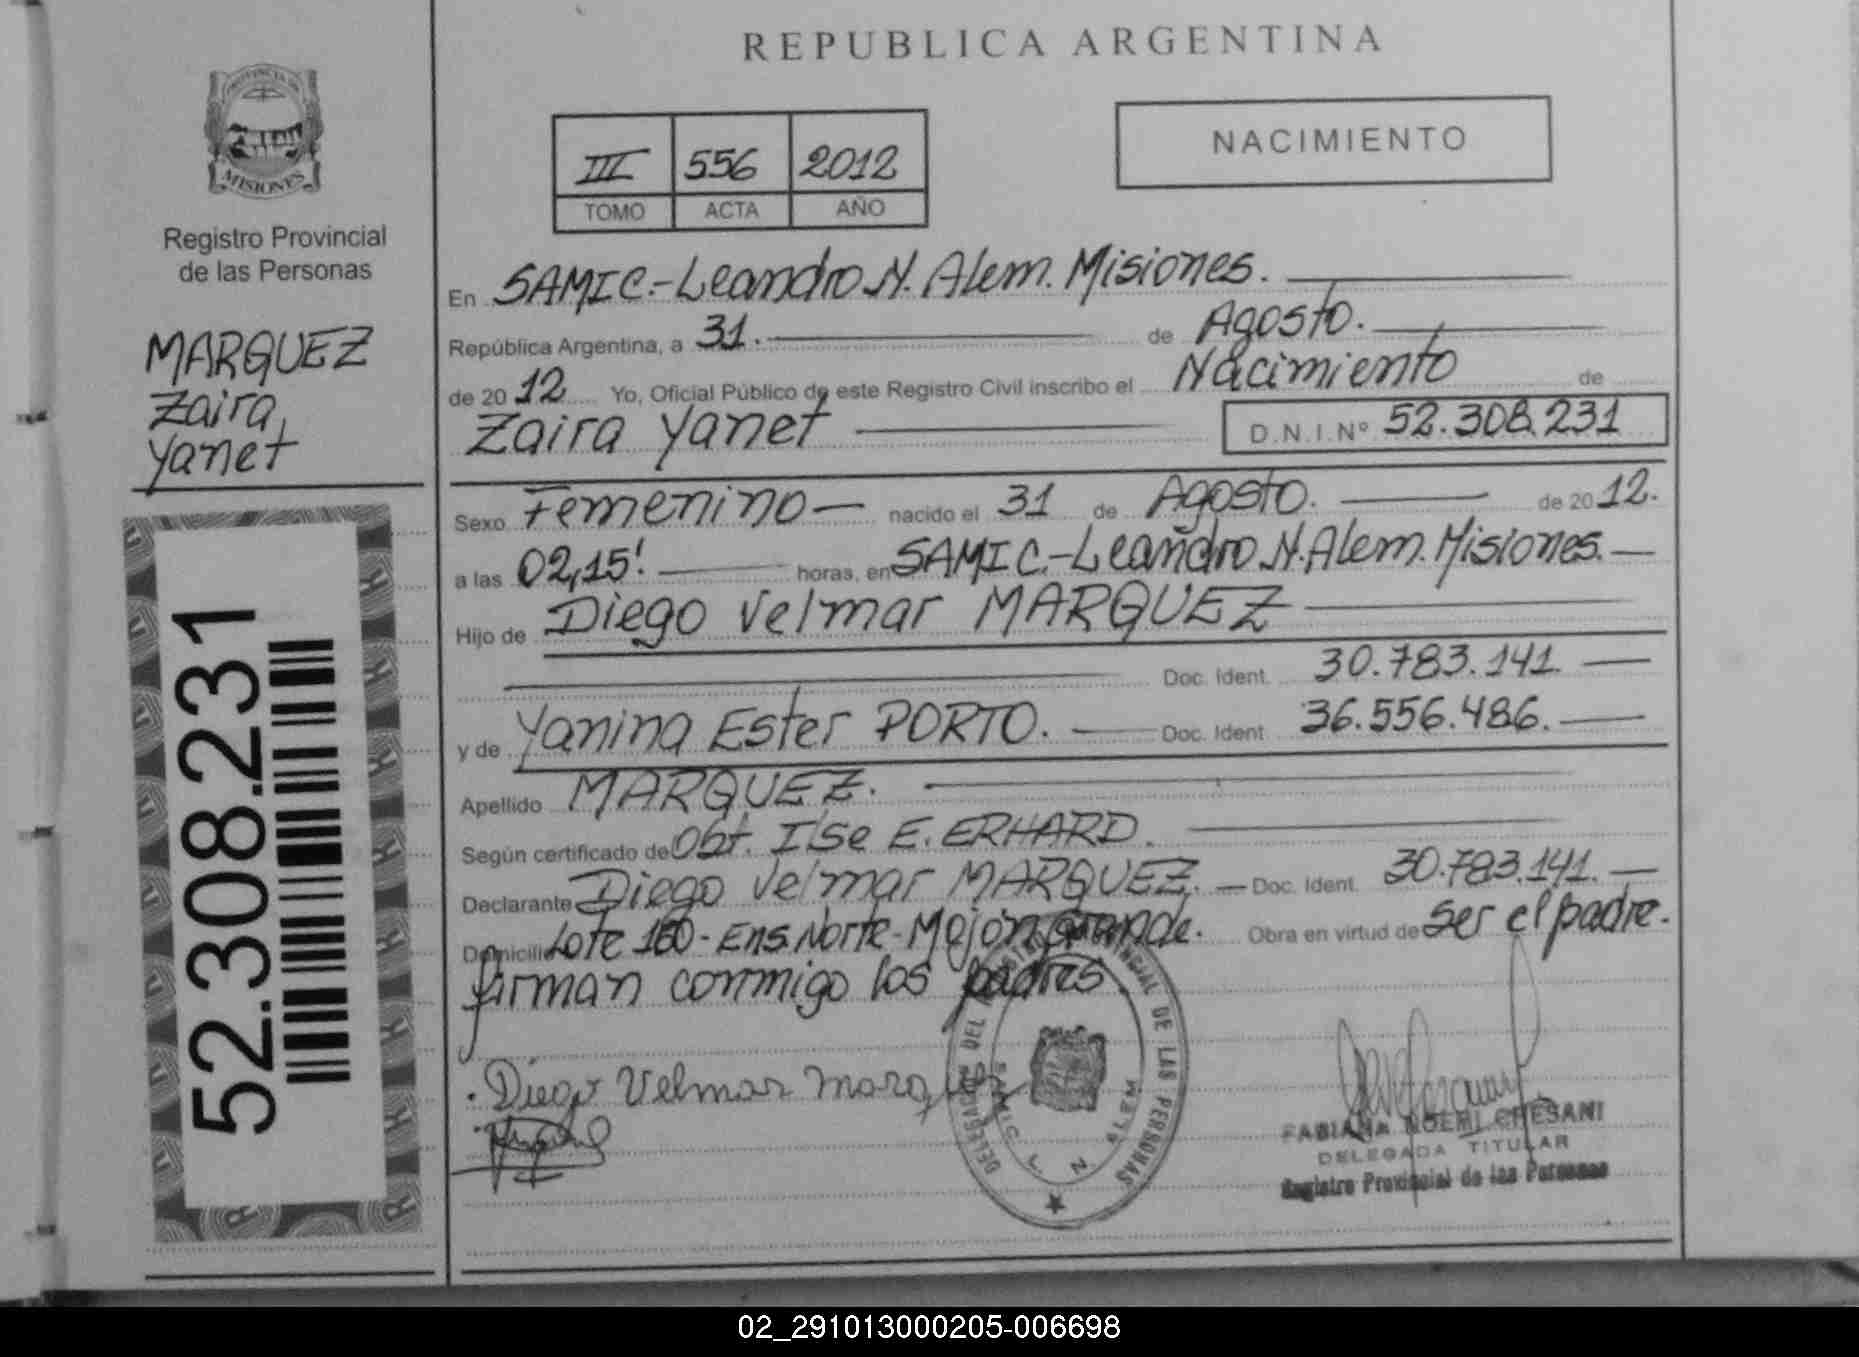 REPUBLICA ARGENTINA
PROVINCIA DE
MISIONES
Registro Provincial
de las Personas
MARQUEZ
Zaira
Yanet
52.308.231
III 556 2012
TOMO ACTA AÑO
NACIMIENTO
En SAMIC.-Leandro N. Alem. Misiones.
República Argentina, a 31. de Agosto.
de 20 12 Yo, Oficial Público de este Registro Civil inscribo el Nacimiento de
Zaira Yanet D.N.I.Nº 52.308.231
Sexo Femenino nacido el 31 de Agosto. de 20 12.
a las 02,15' horas, en SAMIC.-Leandro N. Alem. Misiones.
Hijo de Diego Velmar MARQUEZ
Doc. Ident. 30.783.141.
y de Yanina Ester PORTO. Doc. Ident. 36.556.486.
Apellido MARQUEZ.
Según certificado de Obt. Ilse E. ERHARD.
Declarante Diego Velmar MARQUEZ. Doc. Ident. 30.783.141.
Domicilio Lote 160-Ens.Norte-Mojón grande. Obra en virtud de ser el padre.
firman conmigo los padres.
Diego Velmar Marquez
DELEGACION DEL REGISTRO PROVINCIAL DE LAS PERSONAS
SAMIC L N ALEM
FABIANA NOEMI CRESANI
DELEGADA TITULAR
Registro Provincial de las Personas
02_291013000205-006698